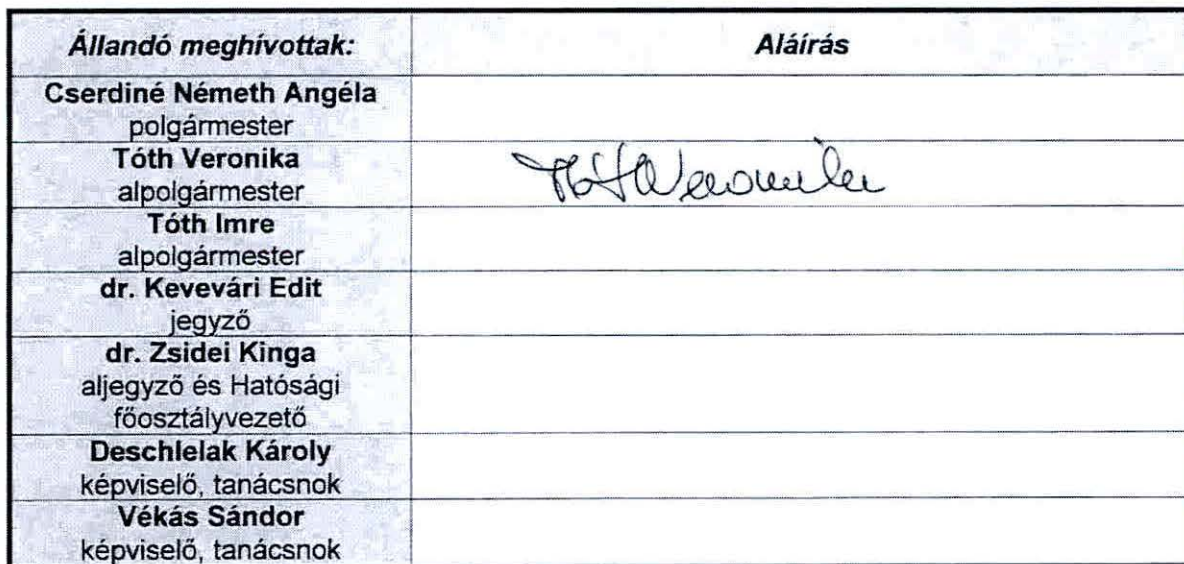 Állandó meghívottak: Aláírás
Cserdiné Németh Angéla
polgármester
Tóth Veronika
alpolgármester
Tóth Veronika
Tóth Imre
alpolgármester
dr. Kevevári Edit
jegyző
dr. Zsidei Kinga
aljegyző és Hatósági
főosztályvezető
Deschlelak Károly
képviselő, tanácsnok
Vékás Sándor
képviselő, tanácsnok